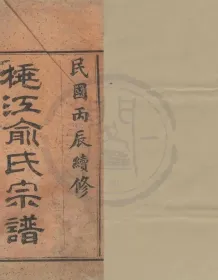 民國丙辰續修
桃江俞氏宗譜